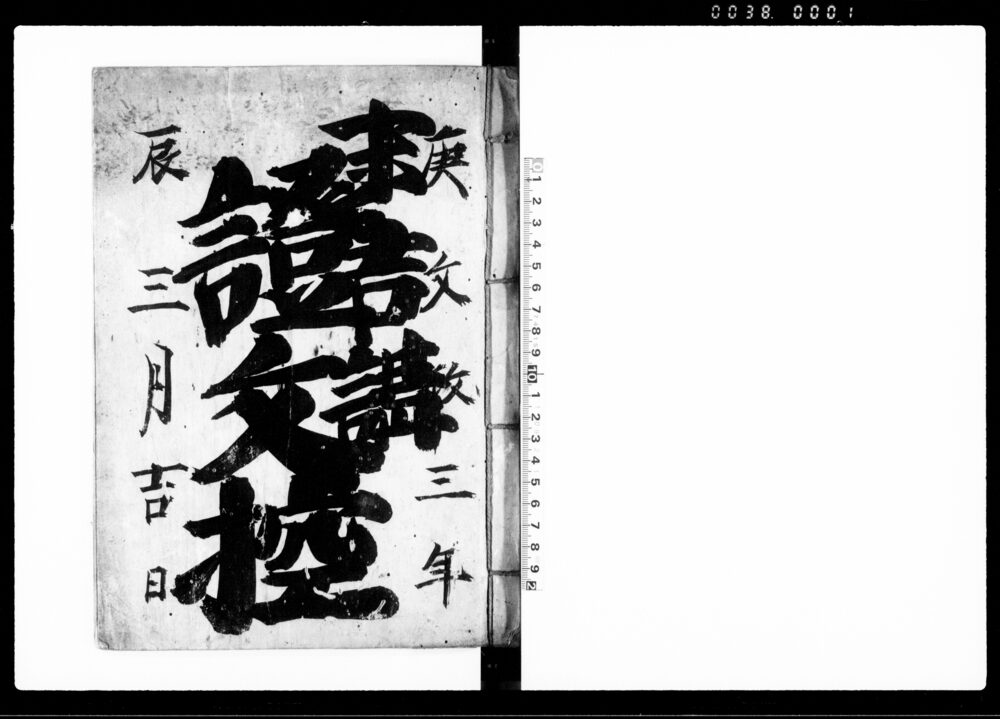 0038. 0001
庚文政三年
末吉講
證文控
辰三月吉日
0 1 2 3 4 5 6 7 8 9 10 1 2 3 4 5 6 7 8 9 2